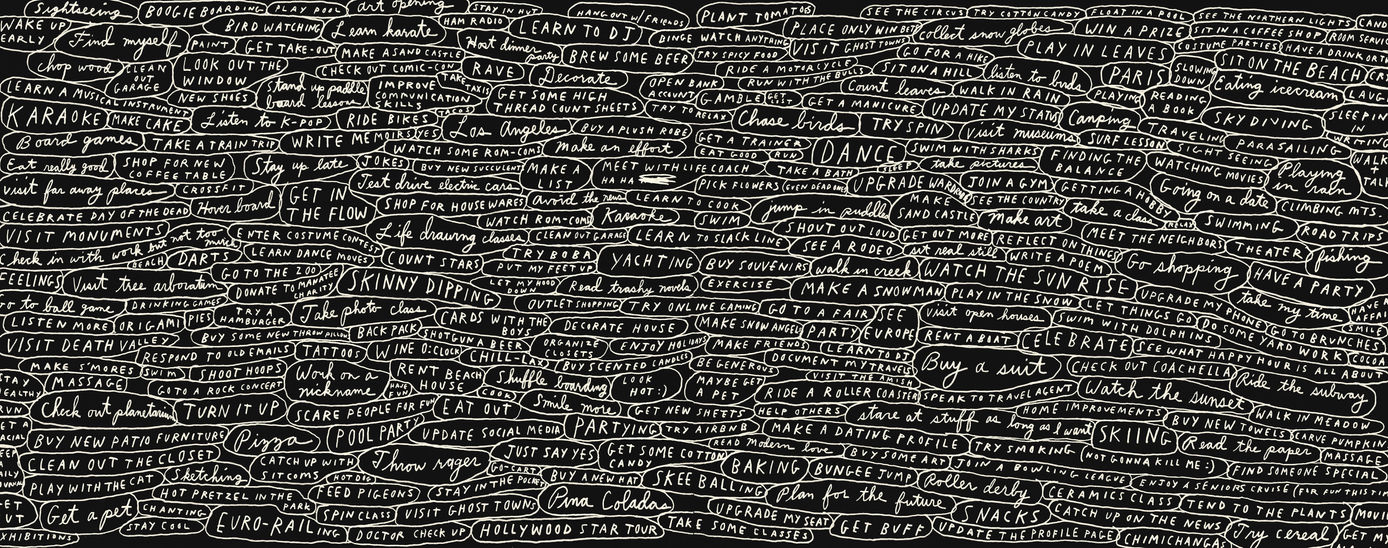 Sightseeing
BOOGIE BOARDING
PLAY POOL
art opening
STAY IN HUT
HANG OUT W/ FRIENDS
PLANT TOMATOS
SEE THE CIRCUS
TRY COTTON CANDY
FLOAT IN A POOL
SEE THE NORTHERN LIGHTS
WAKE UP EARLY
Find myself
BIRD WATCHING
Learn karate
HAM RADIO
LEARN TO DJ
BINGE WATCH ANYTHING
PLACE ONLY WIN BET
Collect snow globes
WIN A PRIZE
SIT IN A COFFEE SHOP
ROOM SERVICE
PAINT
GET TAKE-OUT
MAKE A SAND CASTLE
Host dinner party
BREW SOME BEER
TRY SPICY FOOD
VISIT GHOST TOWNS
GO FOR A HIKE
PLAY IN LEAVES
COSTUME PARTIES
chop wood
CLEAN OUT GARAGE
LOOK OUT THE WINDOW
CHECK OUT COMIC-CON
TAKE TAXIS
RAVE
Decorate
RIDE A MOTORCYCLE
RUN WITH THE BULLS
SIT ON A HILL
listen to birds
PARIS
SLOWING DOWN
SIT ON THE BEACH
LEARN A MUSICAL INSTRUMENT
NEW SHOES
stand up paddle board lessons
IMPROVE COMMUNICATION SKILLS
GET SOME HIGH THREAD COUNT SHEETS
OPEN BANK ACCOUNT
GAMBLE
GET A MANICURE
Count leaves
WALK IN RAIN
PLAYING
READING A BOOK
Eating icecream
KARAOKE
MAKE CAKE
Listen to K-POP
RIDE BIKES
TRY TO RELAX
Chase birds
UPDATE MY STATUS
Camping
TRAVELING
SKY DIVING
Board games
TAKE A TRAIN TRIP
WRITE MEMOIRS
YES
Los Angeles
BUY A PLUSH ROBE
GET A TRAINER
TRY SPIN
Visit museums
SURF LESSON
SIGHT SEEING
PARASAILING
Eat really good
SHOP FOR NEW COFFEE TABLE
Stay up late
JOKES
WATCH SOME ROM-COMS
make an effort
EAT GOOD
RUN
DANCE
SWIM WITH SHARKS
FINDING THE BALANCE
WATCHING MOVIES
Playing in rain
visit far away places
CROSSFIT
GET IN THE FLOW
BUY NEW SUCCULENT
Test drive electric cars
MAKE A IST
MEET WITH LIFE COACH
HA HA
TAKE A BATH
SLEEP
take pictures
PICK FLOWERS (EVEN DEAD ONES)
UPGRADE WARDROBE
JOIN A GYM
GETTING A HOBBY
Going on a date
CLIMBING MTS.
CELEBRATE DAY OF THE DEAD
Hover board
SHOP FOR HOUSEWARES
avoid the news
LEARN TO COOK
jump in puddle
MAKE SAND CASTLE
SEE THE COUNTRY
make art
take a class
RELAX
SWIMMING
ROAD TRIPS
VISIT MONUMENTS
ENTER COSTUME CONTEST
Life drawing classes
WATCH ROM-COMS
Karaoke
SWIM
SHOUT OUT LOUD
GET OUT MORE
REFLECT ON THINGS
MEET THE NEIGHBORS
THEATER
fishing
Check in with work but not too much
BEACH
DARTS
LEARN DANCE MOVES
COUNT STARS
CLEAN OUT GARAGE
LEARN TO SLACK LINE
SEE A RODEO
sit real still
WRITE A POEM
Go shopping
HAVE A PARTY
FEELINGS
Visit tree arboratum
GO TO THE ZOO
DONATE TO MANATEE CHARITY
SKINNY DIPPING
TRY BOBA
PUT MY FEET UP
YACHTING
BUY SOUVENIRS
walk in creek
WATCH THE SUN RISE
Go to ball game
DRINKING GAMES
LET MY HOOD DOWN
Read trashy novels
EXERCISE
MAKE A SNOWMAN
PLAY IN THE SNOW
LET THINGS GO
UPGRADE MY PHONE
take my time
LISTEN MORE
ORIGAMI
PIES
TRY A HAMBURGER
Take photo class
CARDS WITH THE BOYS
OUTLET SHOPPING
TRY ONLINE GAMING
GO TO A FAIR
SEE EUROPE
Visit open houses
SWIM WITH DOLPHINS
DO SOME YARD WORK
GO TO BRUNCHES
VISIT DEATH VALLEY
BUY SOME NEW THROW PILLOWS
BACK PACK
SHOTGUN A BEER
DECORATE HOUSE
MAKE SNOW ANGELS
PARTY
RENT A BOAT
CELEBRATE
SEE WHAT HAPPY HOUR IS ALL ABOUT
COCOA
MAKE S'MORES
RESPOND TO OLD EMAILS
TATTOOS
WINE O:CLOCK
CHILL-
ORGANIZE CLOSETS
ENJOY HOLIDAY
MAKE FRIENDS
LEARN TO DJ
Buy a suit
CHECK OUT COACHELLA
Ride the subway
STAY HEALTHY
MASSAGE
SWIM
SHOOT HOOPS
GO TO A ROCK CONCERT
Work on a nickname
HAVE FUN
RENT BEACH HOUSE
COOK
Shuffle boarding
BUY SCENTED CANDLES
LOOK HOT :)
BE GENEROUS
MAYBE GET A PET
DOCUMENT MY TRAVELS
VISIT THE AMISH
RIDE A ROLLER COASTER
SPEAK TO TRAVEL AGENT
Watch the sunset
WALK IN MEADOW
Check out planetarium
TURN IT UP
SCARE PEOPLE FOR FUN
EAT OUT
Smile more
GET NEW SHEETS
HELP OTHERS
stare at stuff as long as I want
HOME IMPROVEMENTS
BUY NEW TOWELS
CARVE PUMPKIN
BUY NEW PATIO FURNITURE
Pizza
POOL PARTY
UPDATE SOCIAL MEDIA
PARTYING
TRY AIRBNB
MAKE A DATING PROFILE
SKIING
Read the paper
MASSAGE
CLEAN OUT THE CLOSET
CATCH UP WITH SITCOMS
Throw rager
JUST SAY YES
GET SOME COTTON CANDY
READ Modern love
BUY SOME ART
TRY SMOKING (NOT GONNA KILL ME :)
FIND SOMEONE SPECIAL
PLAY WITH THE CAT
Sketching
HOT DOG
GO-CART
BUY A NEW HAT
BAKING
BUNGEE JUMP
JOIN A BOWLING LEAGUE
ENJOY A SENIORS CRUISE
HOT PRETZEL IN THE PARK
FEED PIGEONS
STAY IN THE POCKET
SKEE BALLING
Plan for the future
Roller derby
CERAMICS CLASS
TEND TO THE PLANTS
Get a pet
CHANTING
STAY COOL
EURO-RAILING
SPIN CLASS
VISIT GHOST TOWNS
Pina Coladas
UPGRADE MY SEAT
SNACKS
CATCH UP ON THE NEWS
EXHIBITIONS
DOCTOR CHECK UP
HOLLYWOOD STAR TOUR
TAKE SOME CLASSES
GET BUFF
UPDATE THE PROFILE PAGE
CHIMICHANGAS
Try cereal